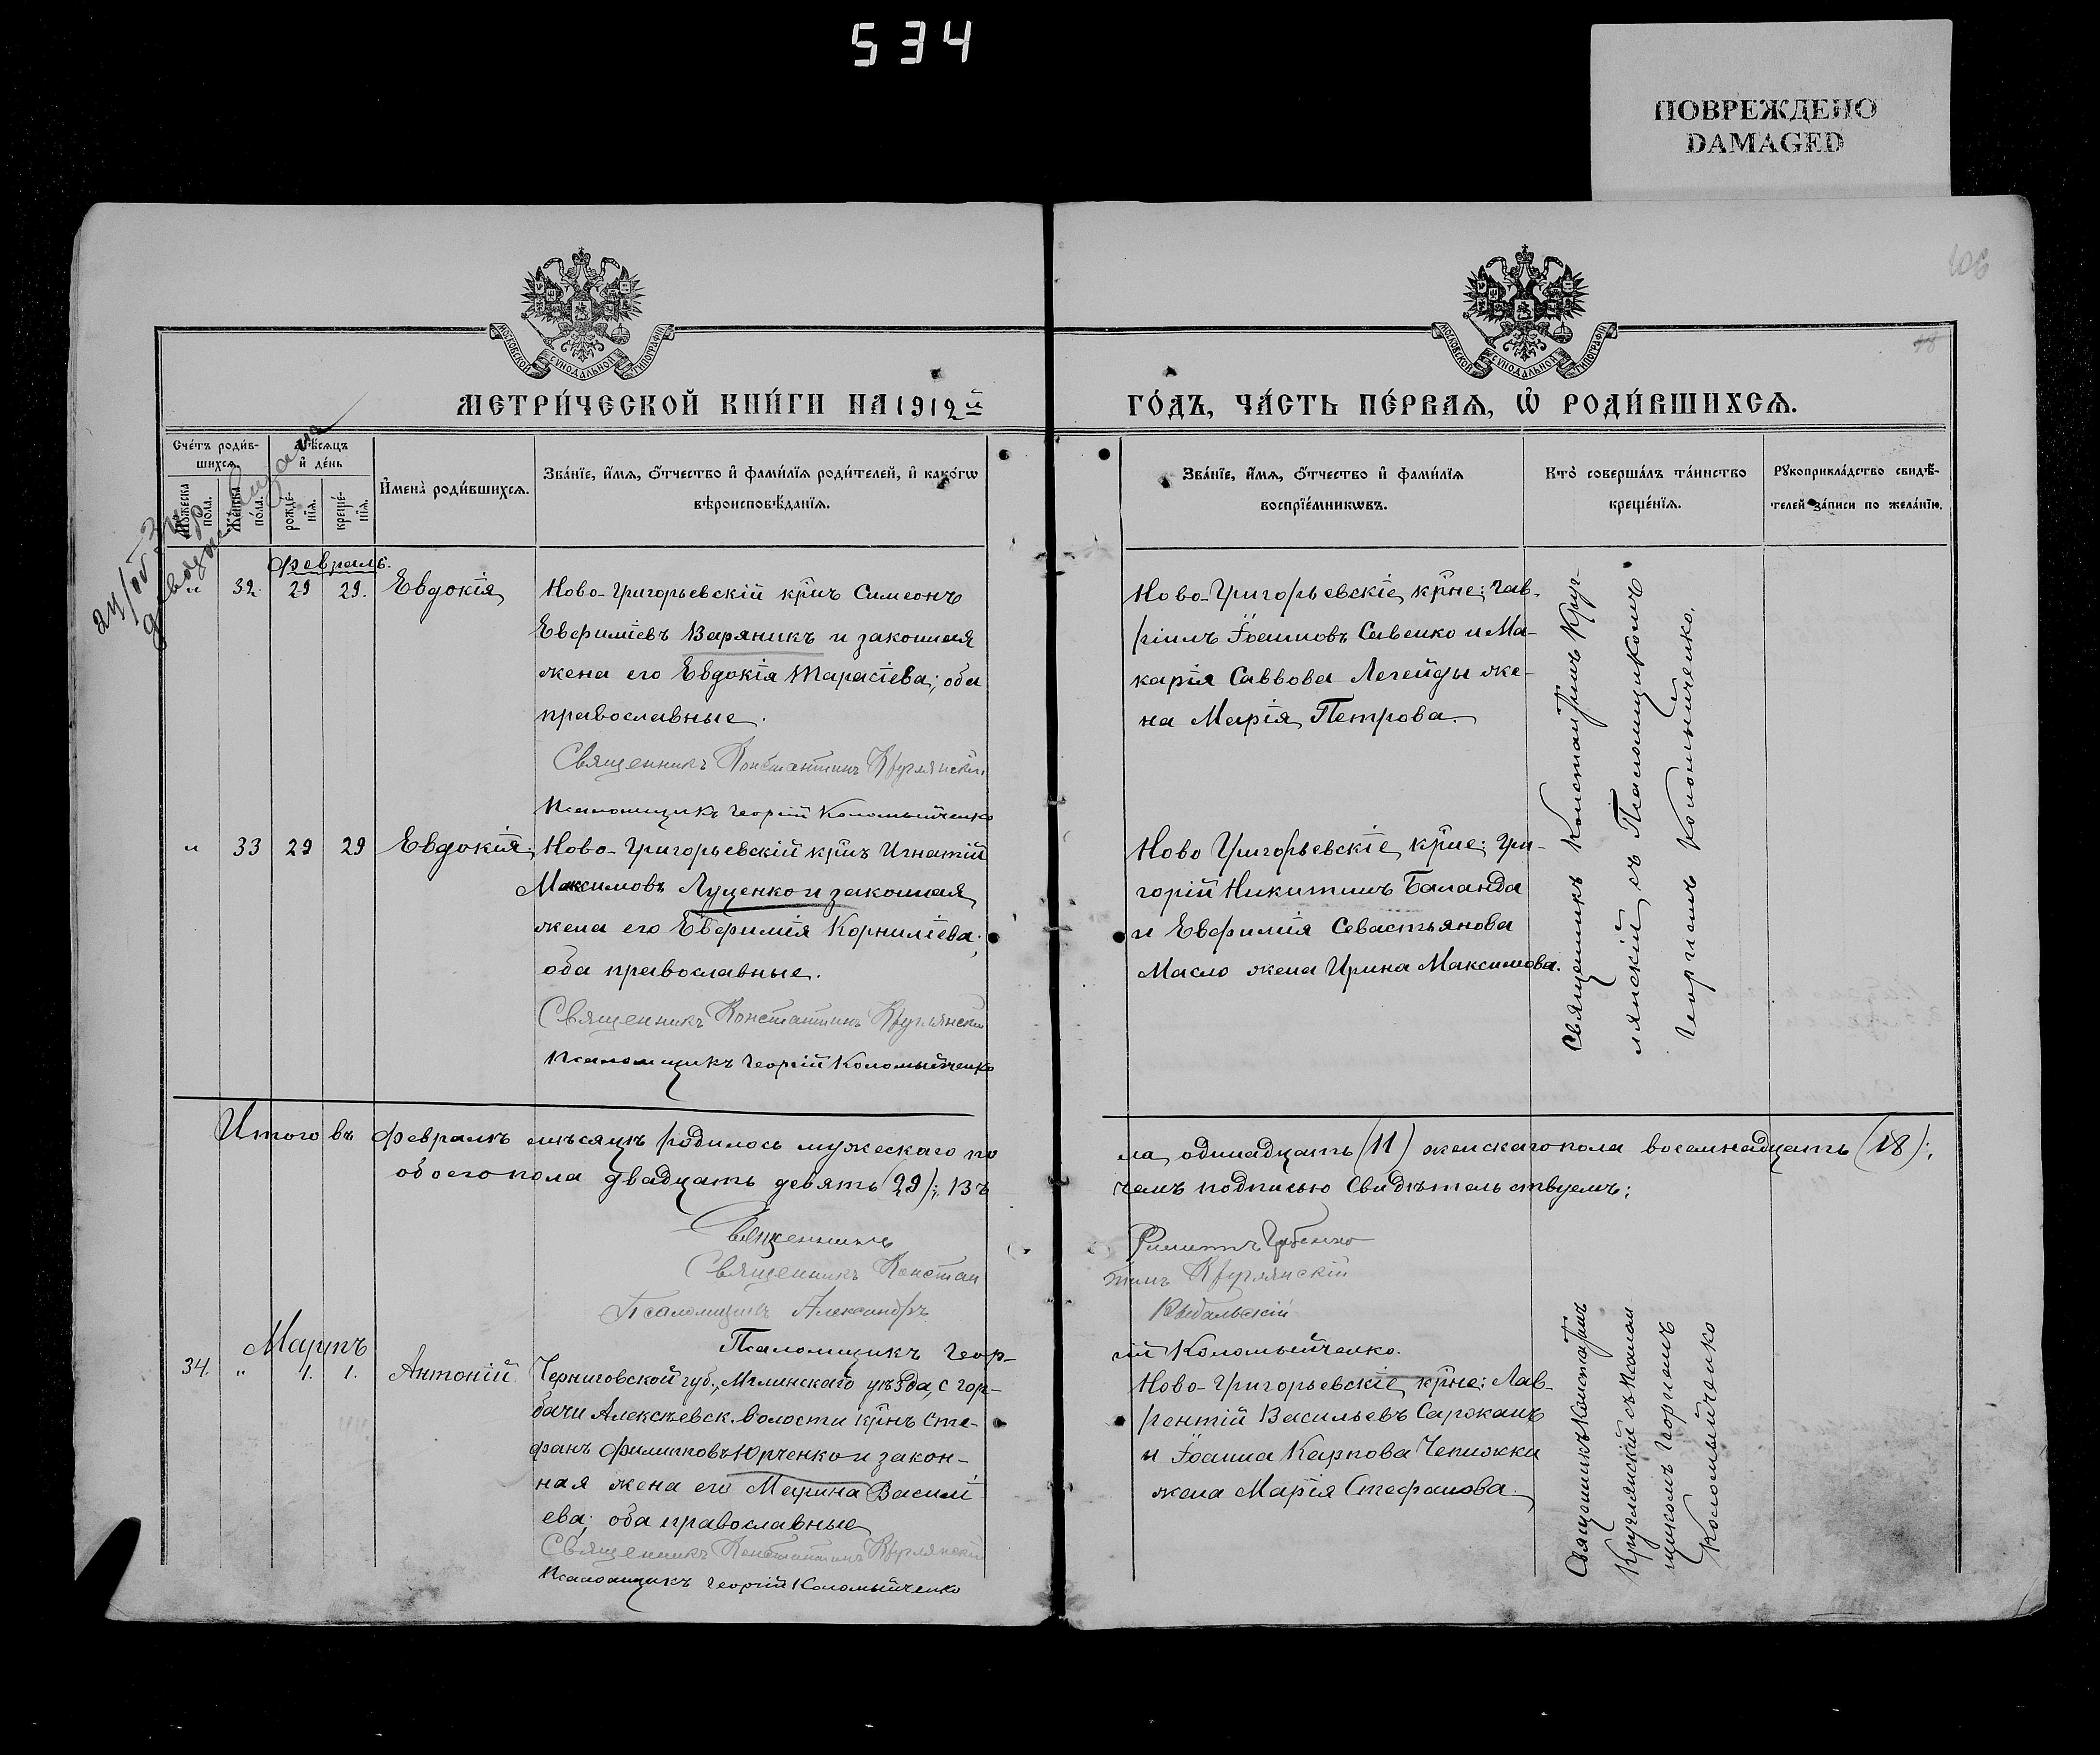 534
ПОВРЕЖДЕНО
DAMAGED
МОСКОВСКОЙ СУНОДАЛЬНОЙ ТИПОГРАФІИ
МОСКОВСКОЙ СУНОДАЛЬНОЙ ТИПОГРАФІИ
МЕТРИ́ЧЕСКОЙ КНИ́ГИ НА 1912й
ГО́ДЪ, ЧА́СТЬ ПЕ́РВАѦ, Ѡ РОДИ́ВШИХСѦ.
Сче́тъ роди́в-
шихсѧ.
Мѣ́сѧцъ
и҆ де́нь
Мꙋжеска
пола.
Же́нска
по́ла.
рожде́-
нїѧ.
креще́-
нїѧ.
И҆мена̀ роди́вшихсѧ.
Зва́нїе, и҆́мѧ, ѻ҆́тчество и҆ фами́лїѧ роди́телей, и҆ како́гѡ
вѣроисповѣ́данїѧ.
Зва́нїе, и҆́мѧ, ѻ҆́тчество и҆ фами́лїѧ
воспрїе́мникѡвъ.
Кто̀ соверша́лъ та́инство
креще́нїѧ.
Рꙋкоприкла́дство свидѣ́-
телей за́писи по жела́нїю.
Февраль.
" 32. 29 29. Евдокія
Ново-Григорьевскій крнъ Симеонъ
Евфиміевъ Варяникъ и законная
жена его Евдокія Тарасіева; оба
православные.
Священникъ Константинъ Круглянскій
Псаломщикъ Георгій Коломыйченко
Ново-Григорьевскіе крне: Гав-
ріилъ Іоанновъ Савенко и Ма-
карія Саввова Легейды же-
на Марія Петрова.
Священникъ Константинъ Круг-
лянскій съ Псаломщикомъ
Георгіемъ Коломыйченко.
" 33 29 29 Евдокія
Ново-Григорьевскій крнъ Игнатій
Максимовъ Луценко и законная
жена его Евфимія Корниліева;
оба православные.
Священникъ Константинъ Круглянскій
Псаломщикъ Георгій Коломыйченко
Ново Григорьевскіе крне: Гри-
горій Никитинъ Баланда
и Евфимія Севастьянова
Масло жена Ирина Максимова.
Итого въ Февралѣ мѣсяцѣ родилось мужескаго по
ла одинадцать (11) женскаго пола восемнадцать (18);
обоего пола двадцать девять (29); въ
чемъ подписью свидѣтельствуемъ:
Священникъ
Священникъ Констан
тинъ Круглянскій
Псаломщикъ Александръ
Псаломщикъ Геор-
гій Коломыйченко.
Мартъ
34. " 1. 1. Антоній
Черниговской губ., Мглинскаго уѣзда, с Гор-
бачи Алексѣевск. волости крнъ Сте-
фанъ Филипповъ Юрченко и закон-
ная жена его Марина Василі
ева; оба православные
Священникъ Константинъ Круглянскій
Псаломщикъ Георгій Коломыйченко
Ново-Григорьевскіе крне: Лав-
рентій Васильевъ Сарокань
и Іоанна Карпова Чепижки
жена Марія Стефанова.
Священникъ Константинъ
Круглянскій съ Псалом
щикомъ Георгіемъ
Коломыйченко